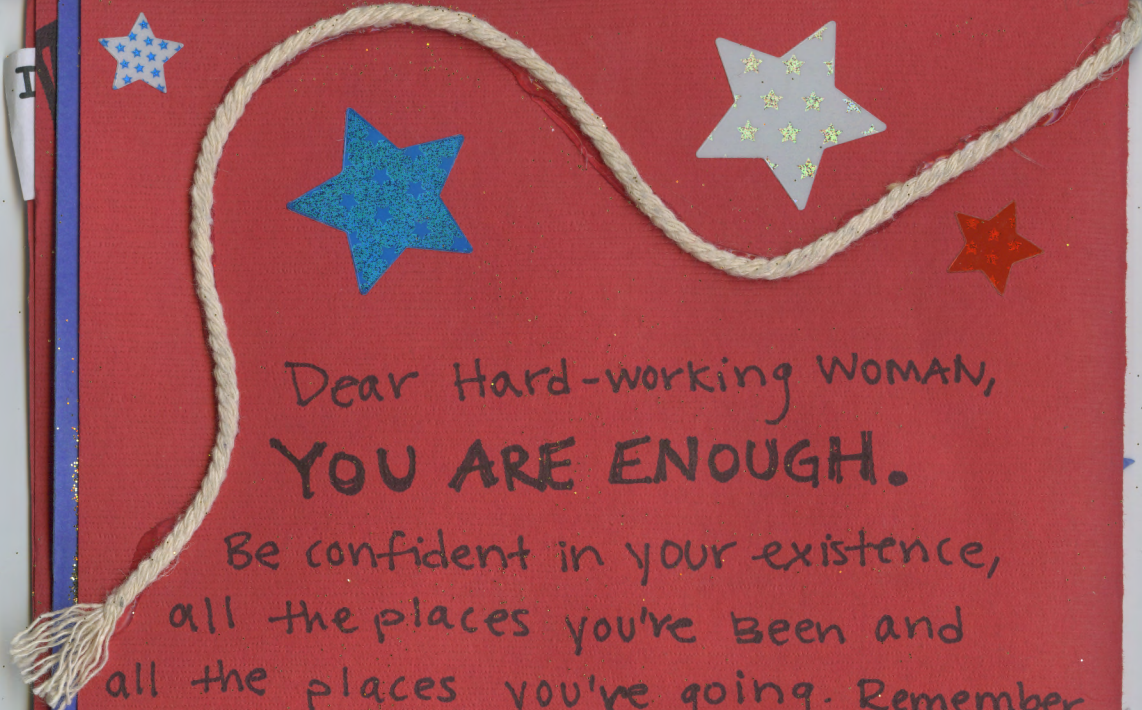 Dear Hard-working WOMAN,
YOU ARE ENOUGH.
Be confident in your existence,
all the places you've Been and
all the places you've going. Remember